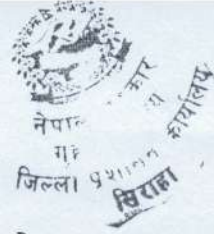 नेपाल
कार
गृह
य
जिल्ला प्रशासन कार्यालय
सिराहा